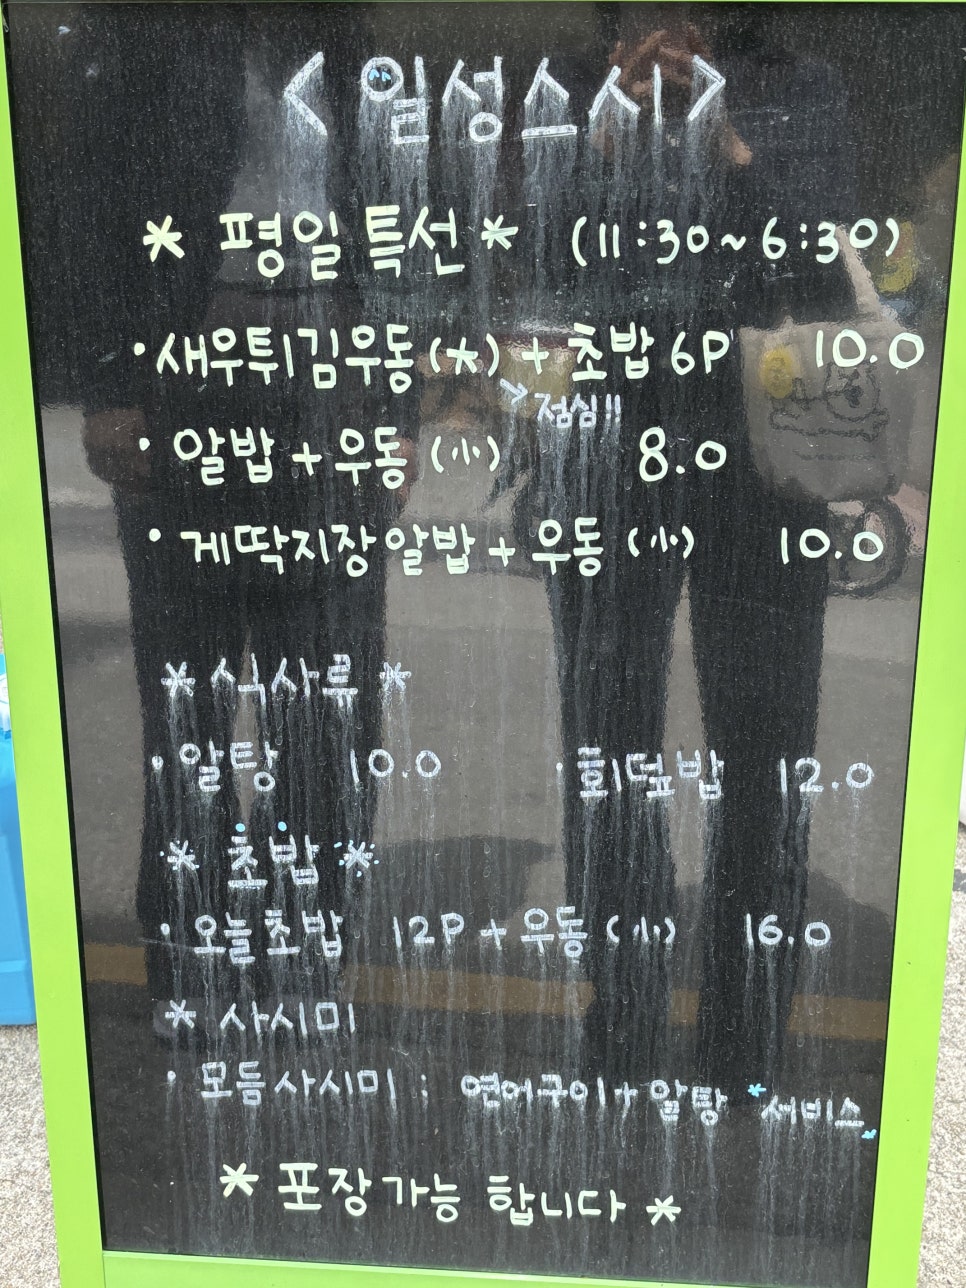 <일성스시>
* 평일 특선 * (11:30~6:30)
· 새우튀김우동(大) + 초밥 6P 10.0
→ 점심!!
· 알밥 + 우동 (小) 8.0
· 게딱지장 알밥 + 우동 (小) 10.0
* 식사류 *
· 알탕 10.0 · 회덮밥 12.0
* 초밥 *
· 오늘초밥 12P + 우동 (小) 16.0
* 사시미
· 모듬사시미 : 연어구이 + 알탕 * 서비스 *
* 포장가능 합니다 *